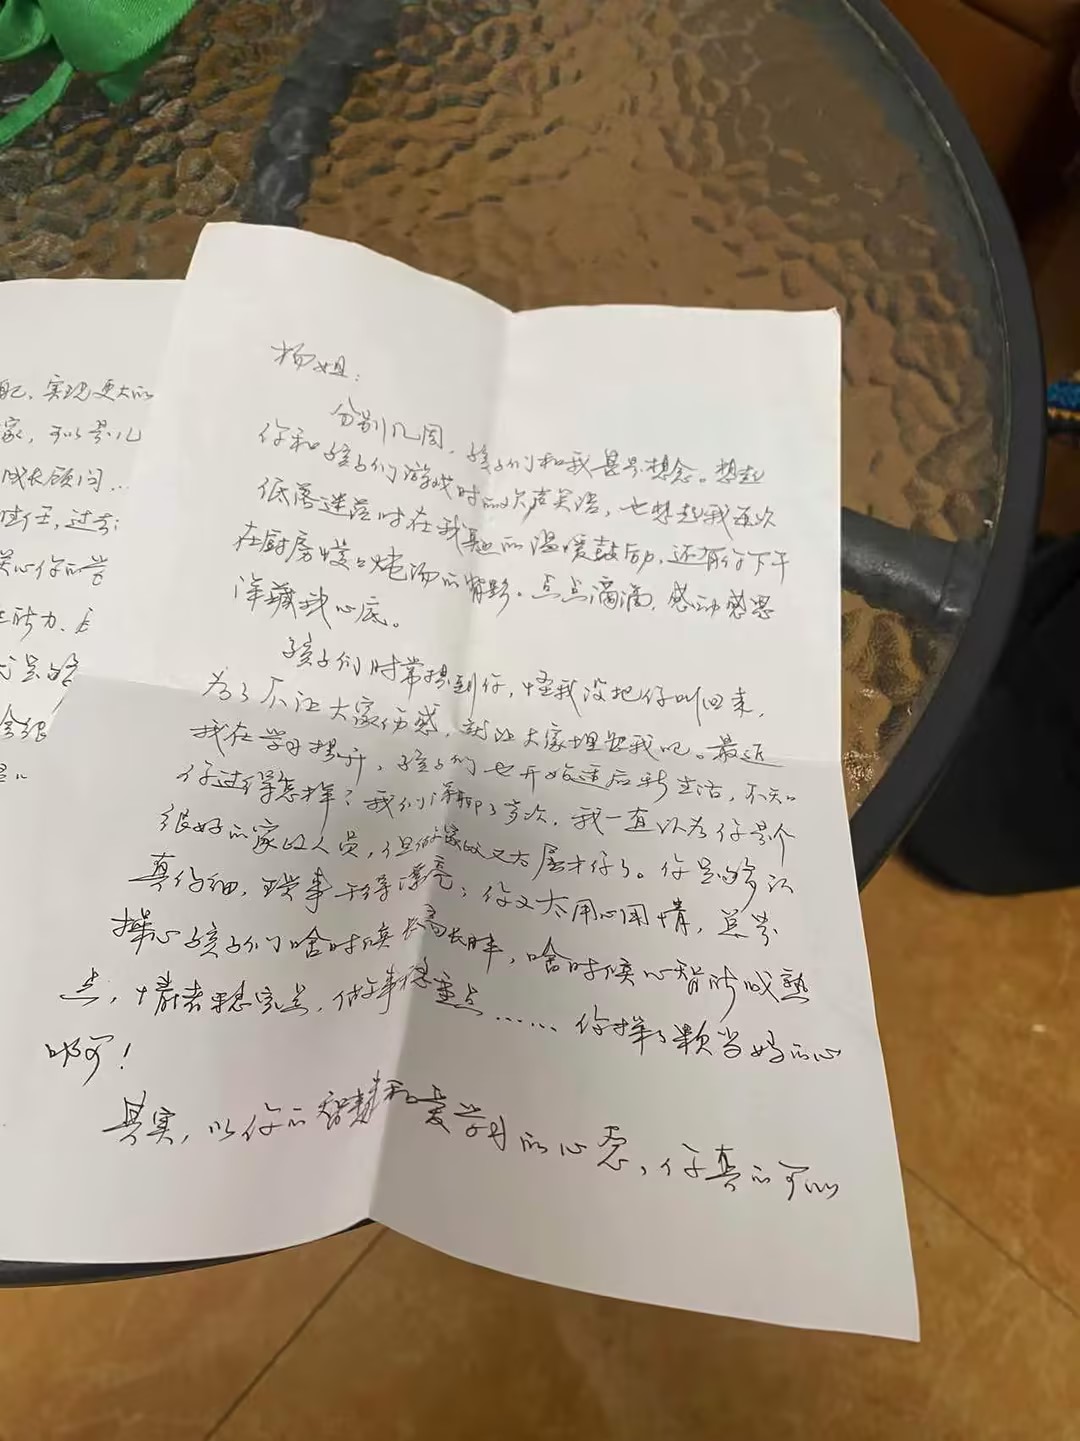 杨姐：
分别几周，孩子们和我甚是想念。想起
你和孩子们游戏时的欢声笑语，也想起我每次
低落迷茫时在我身边的温暖鼓励，还有你下午
在厨房慢慢炖汤的背影。点点滴滴，感动感恩
深藏我心底。
孩子们时常提到你，怪我没把你叫回来，
为了不让大家伤感，就让大家埋怨我吧。最近
我在学习提升，孩子们也开始适应新生活，不知
你过得怎样？我们深聊了多次，我一直认为你是个
很好的家政人员，但做家政又太屈才你了。你足够认
真仔细，理事干得漂亮；你又太用心用情，总是
操心孩子们啥时候长高长胖，啥时候心智能成熟
点，情绪稳定点，做事稳重点……你操了颗当妈的心
啊！
其实，以你的智慧和爱学习的心态，你真的可以
配，实现更大的
家，可以是儿
成长顾问…
胜任，过去
关心你的
能力，
足够
会很